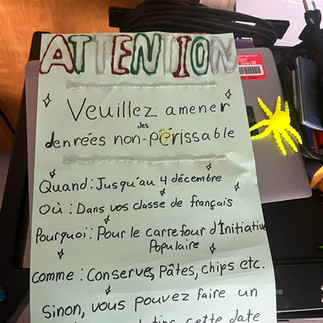 ATTENTION
Veuillez amener
des
denrées non-périssable
Quand : Jusqu'au 4 décembre
Où : Dans vos classe de français
Pourquoi : Pour le carrefour d'Initiative
Populaire
Comme : Conserves, Pâtes, chips etc.
Sinon, vous pouvez faire un
cette date